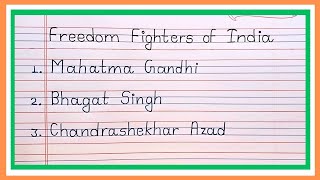 Freedom Fighters of India
1. Mahatma Gandhi
2. Bhagat Singh
3. Chandrashekhar Azad